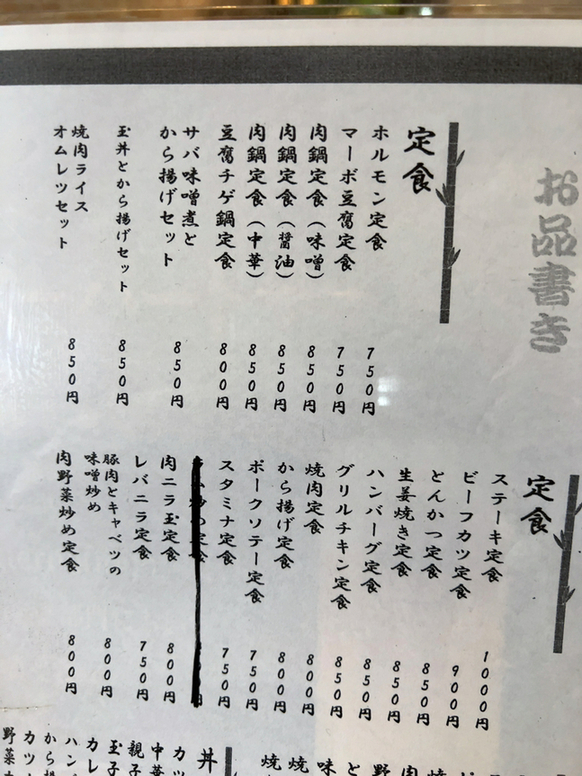 お品書き
定食
ホルモン定食 750円
マーボ豆腐定食 750円
肉鍋定食(味噌) 850円
肉鍋定食(醤油) 850円
肉鍋定食(中華) 850円
豆腐チゲ鍋定食 800円
サバ味噌煮と
から揚げセット 850円
玉丼とから揚げセット 850円
焼肉ライス
オムレツセット 850円
定食
ステーキ定食 1000円
ビーフカツ定食 900円
とんかつ定食 850円
生姜焼き定食 850円
ハンバーグ定食 850円
グリルチキン定食 850円
焼肉定食 800円
から揚げ定食 800円
ポークソテー定食 750円
スタミナ定食 750円
肉ニラ玉定食 800円
レバニラ定食 750円
豚肉とキャベツの
味噌炒め 800円
肉野菜炒め定食 800円
丼